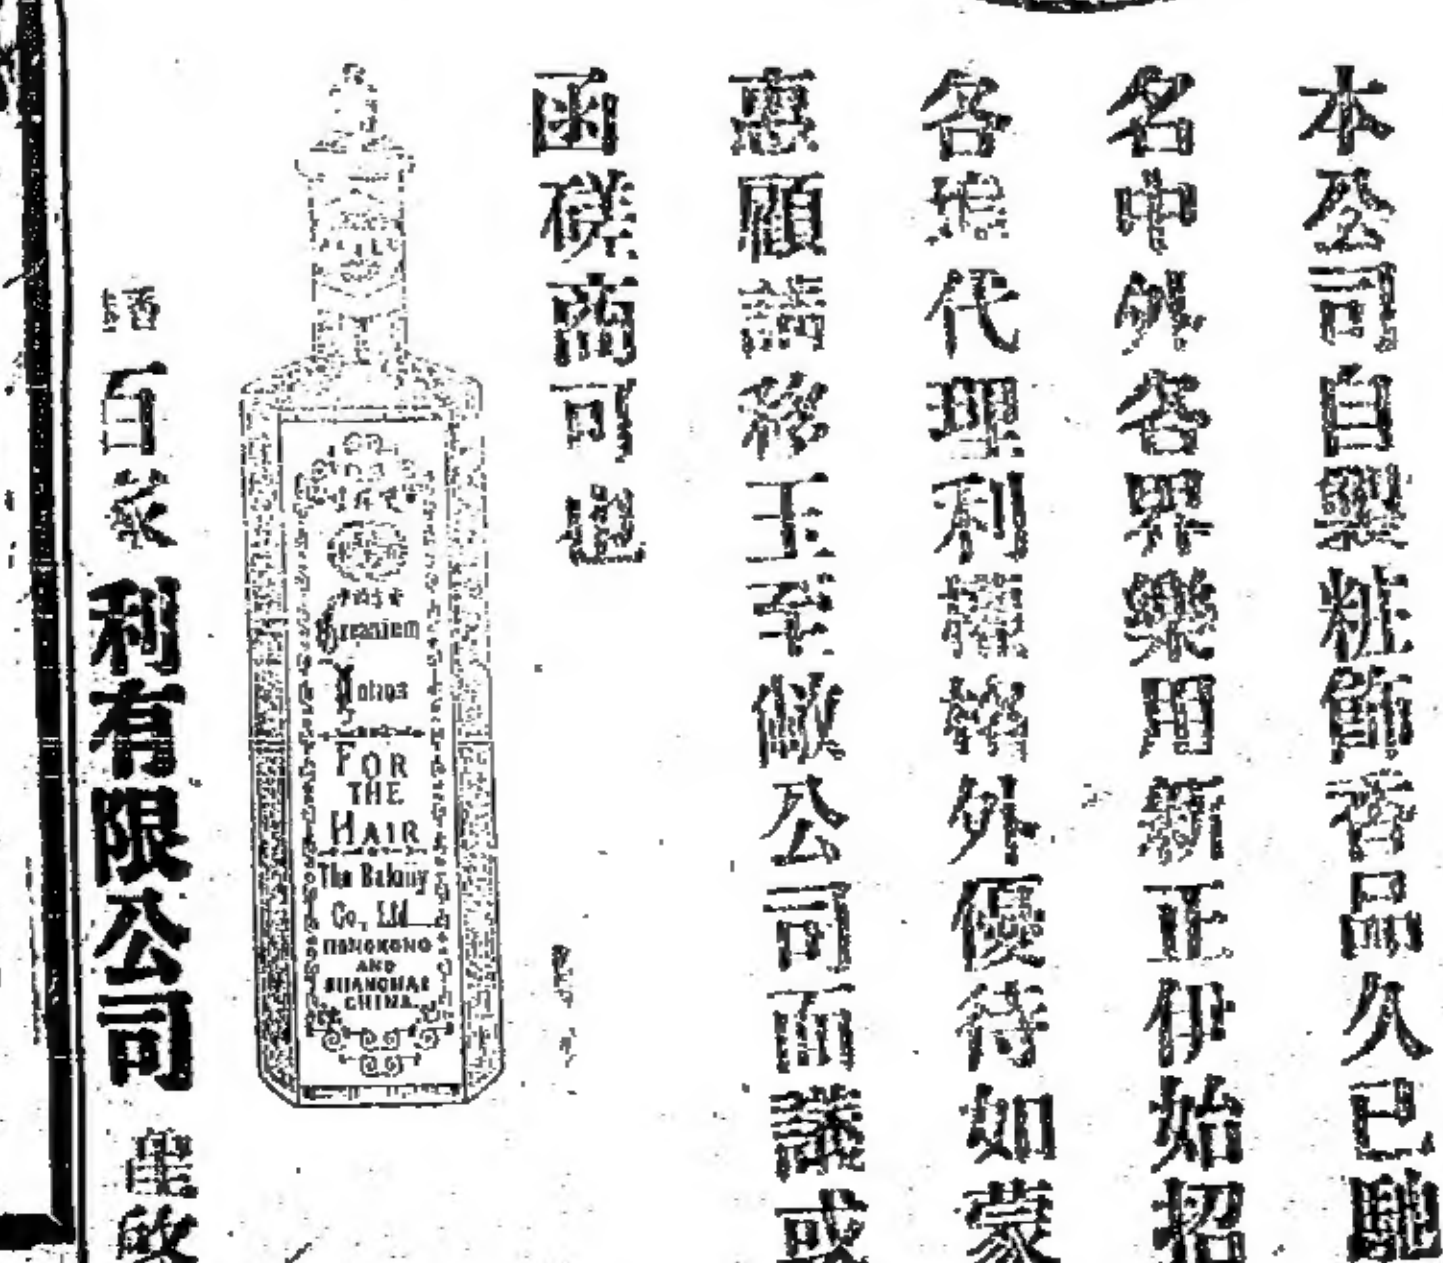 本公司自製粧飾香品久已馳
名中外各界樂用新正伊始招
各埠代理利權給外優待如蒙
惠顧請移玉至敝公司面議或
函磋商可也
Geranium
FOR
THE
HAIR
The Bakony
Co., Ltd
HONGKONG
AND
SHANGHAI
CHINA
百家
利有限公司
謹啟